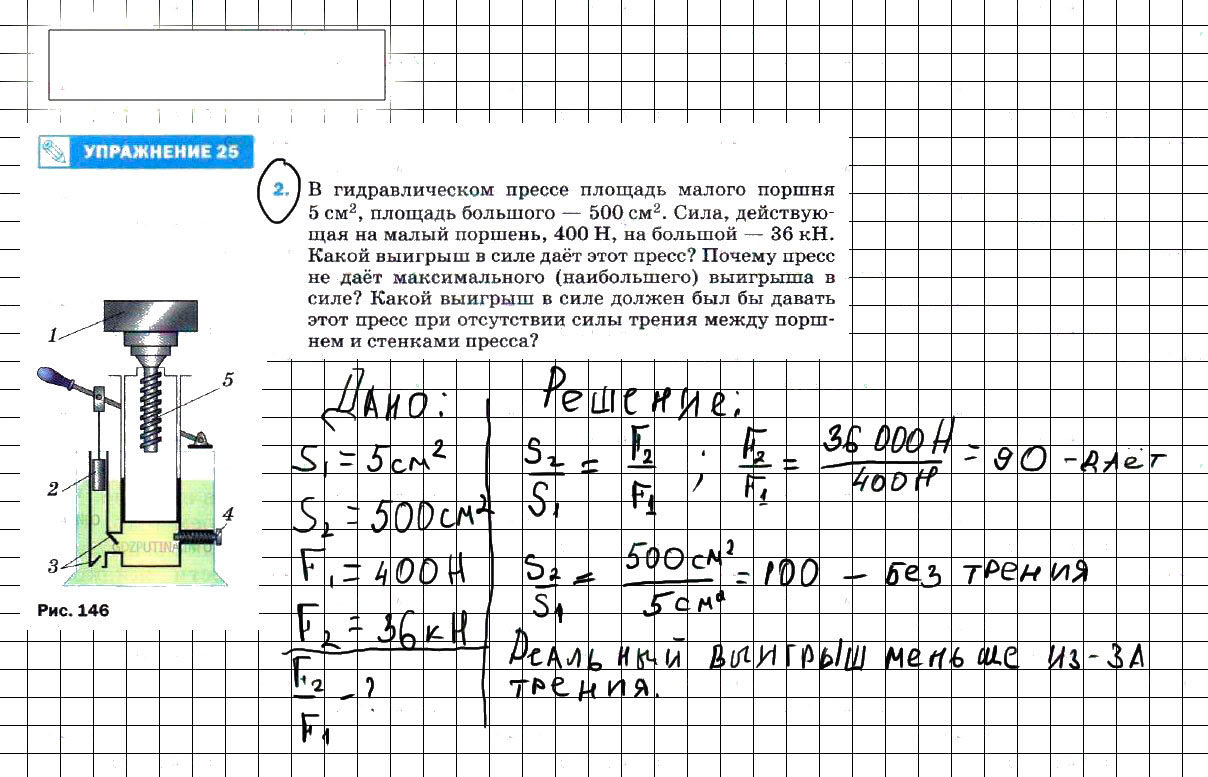 УПРАЖНЕНИЕ 25
2. В гидравлическом прессе площадь малого поршня
5 см², площадь большого — 500 см². Сила, действую-
щая на малый поршень, 400 Н, на большой — 36 кН.
Какой выигрыш в силе даёт этот пресс? Почему пресс
не даёт максимального (наибольшего) выигрыша в
силе? Какой выигрыш в силе должен был бы давать
этот пресс при отсутствии силы трения между порш-
нем и стенками пресса?
1
5
2
4
3
GDZPUTINA.INFO
Рис. 146
Дано:
S₁ = 5 см²
S₂ = 500 см²
F₁ = 400 Н
F₂ = 36 кН
F₂/F₁ - ?
Решение:
S₂/S₁ = F₂/F₁ ; F₂/F₁ = 36 000 Н/400 Н = 90 - даёт
S₂/S₁ = 500 см²/5 см² = 100 - без трения
Реальный выигрыш меньше из-за
трения.